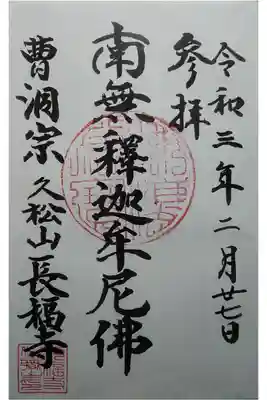 参拝
令和三年二月廿七日
南無釋迦牟尼佛
曹洞宗 久松山 長福寺